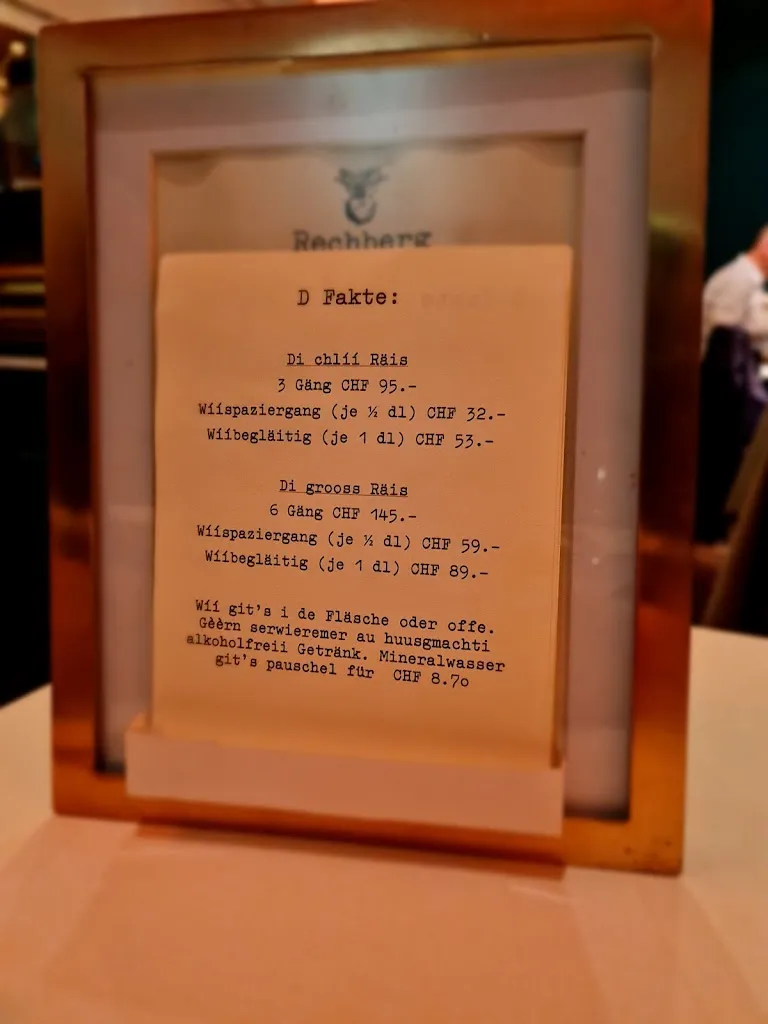 Rechberg
D Fakte:
Di chlíí Räis
3 Gäng CHF 95.-
Wííspaziergang (je ½ dl) CHF 32.-
Wííbegläitig (je 1 dl) CHF 53.-
Di grooss Räis
6 Gäng CHF 145.-
Wííspaziergang (je ½ dl) CHF 59.-
Wííbegläitig (je 1 dl) CHF 89.-
Wíí git's i de Fläsche oder offe.
Gèèrn serwieremer au huusgmachti
alkoholfreii Getränk. Mineralwasser
git's pauschel für CHF 8.7o